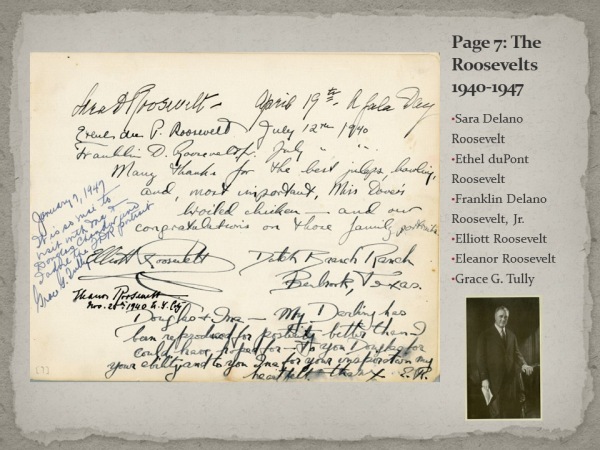 Sara D Roosevelt – April 19th. A Gala Day
Ethel du P. Roosevelt July 12th 1940
Franklin D. Roosevelt Jr. July " "
Many thanks for the best juleps, bowling,
and, most important, Miss Dover's
broiled chicken — and our
congratulations on those family portraits
January 9, 1947
It is so nice to
visit with Mr. &
Douglas Chandor and
the FDR portrait
Grace G. Tully
Elliott Roosevelt Dutch Branch Ranch
Benbrook, Texas.
Eleanor Roosevelt
Nov. 20th 1940 N.Y. City
Douglas & Ina — My Darling has
been reproduced for posterity better than I
could have hoped for — To you Douglas for
your ability and to you Ina for your inspiration my
heartfelt thanks E.R.
[7]
Page 7: The
Roosevelts
1940-1947
•Sara Delano
Roosevelt
•Ethel duPont
Roosevelt
•Franklin Delano
Roosevelt, Jr.
•Elliott Roosevelt
•Eleanor Roosevelt
•Grace G. Tully